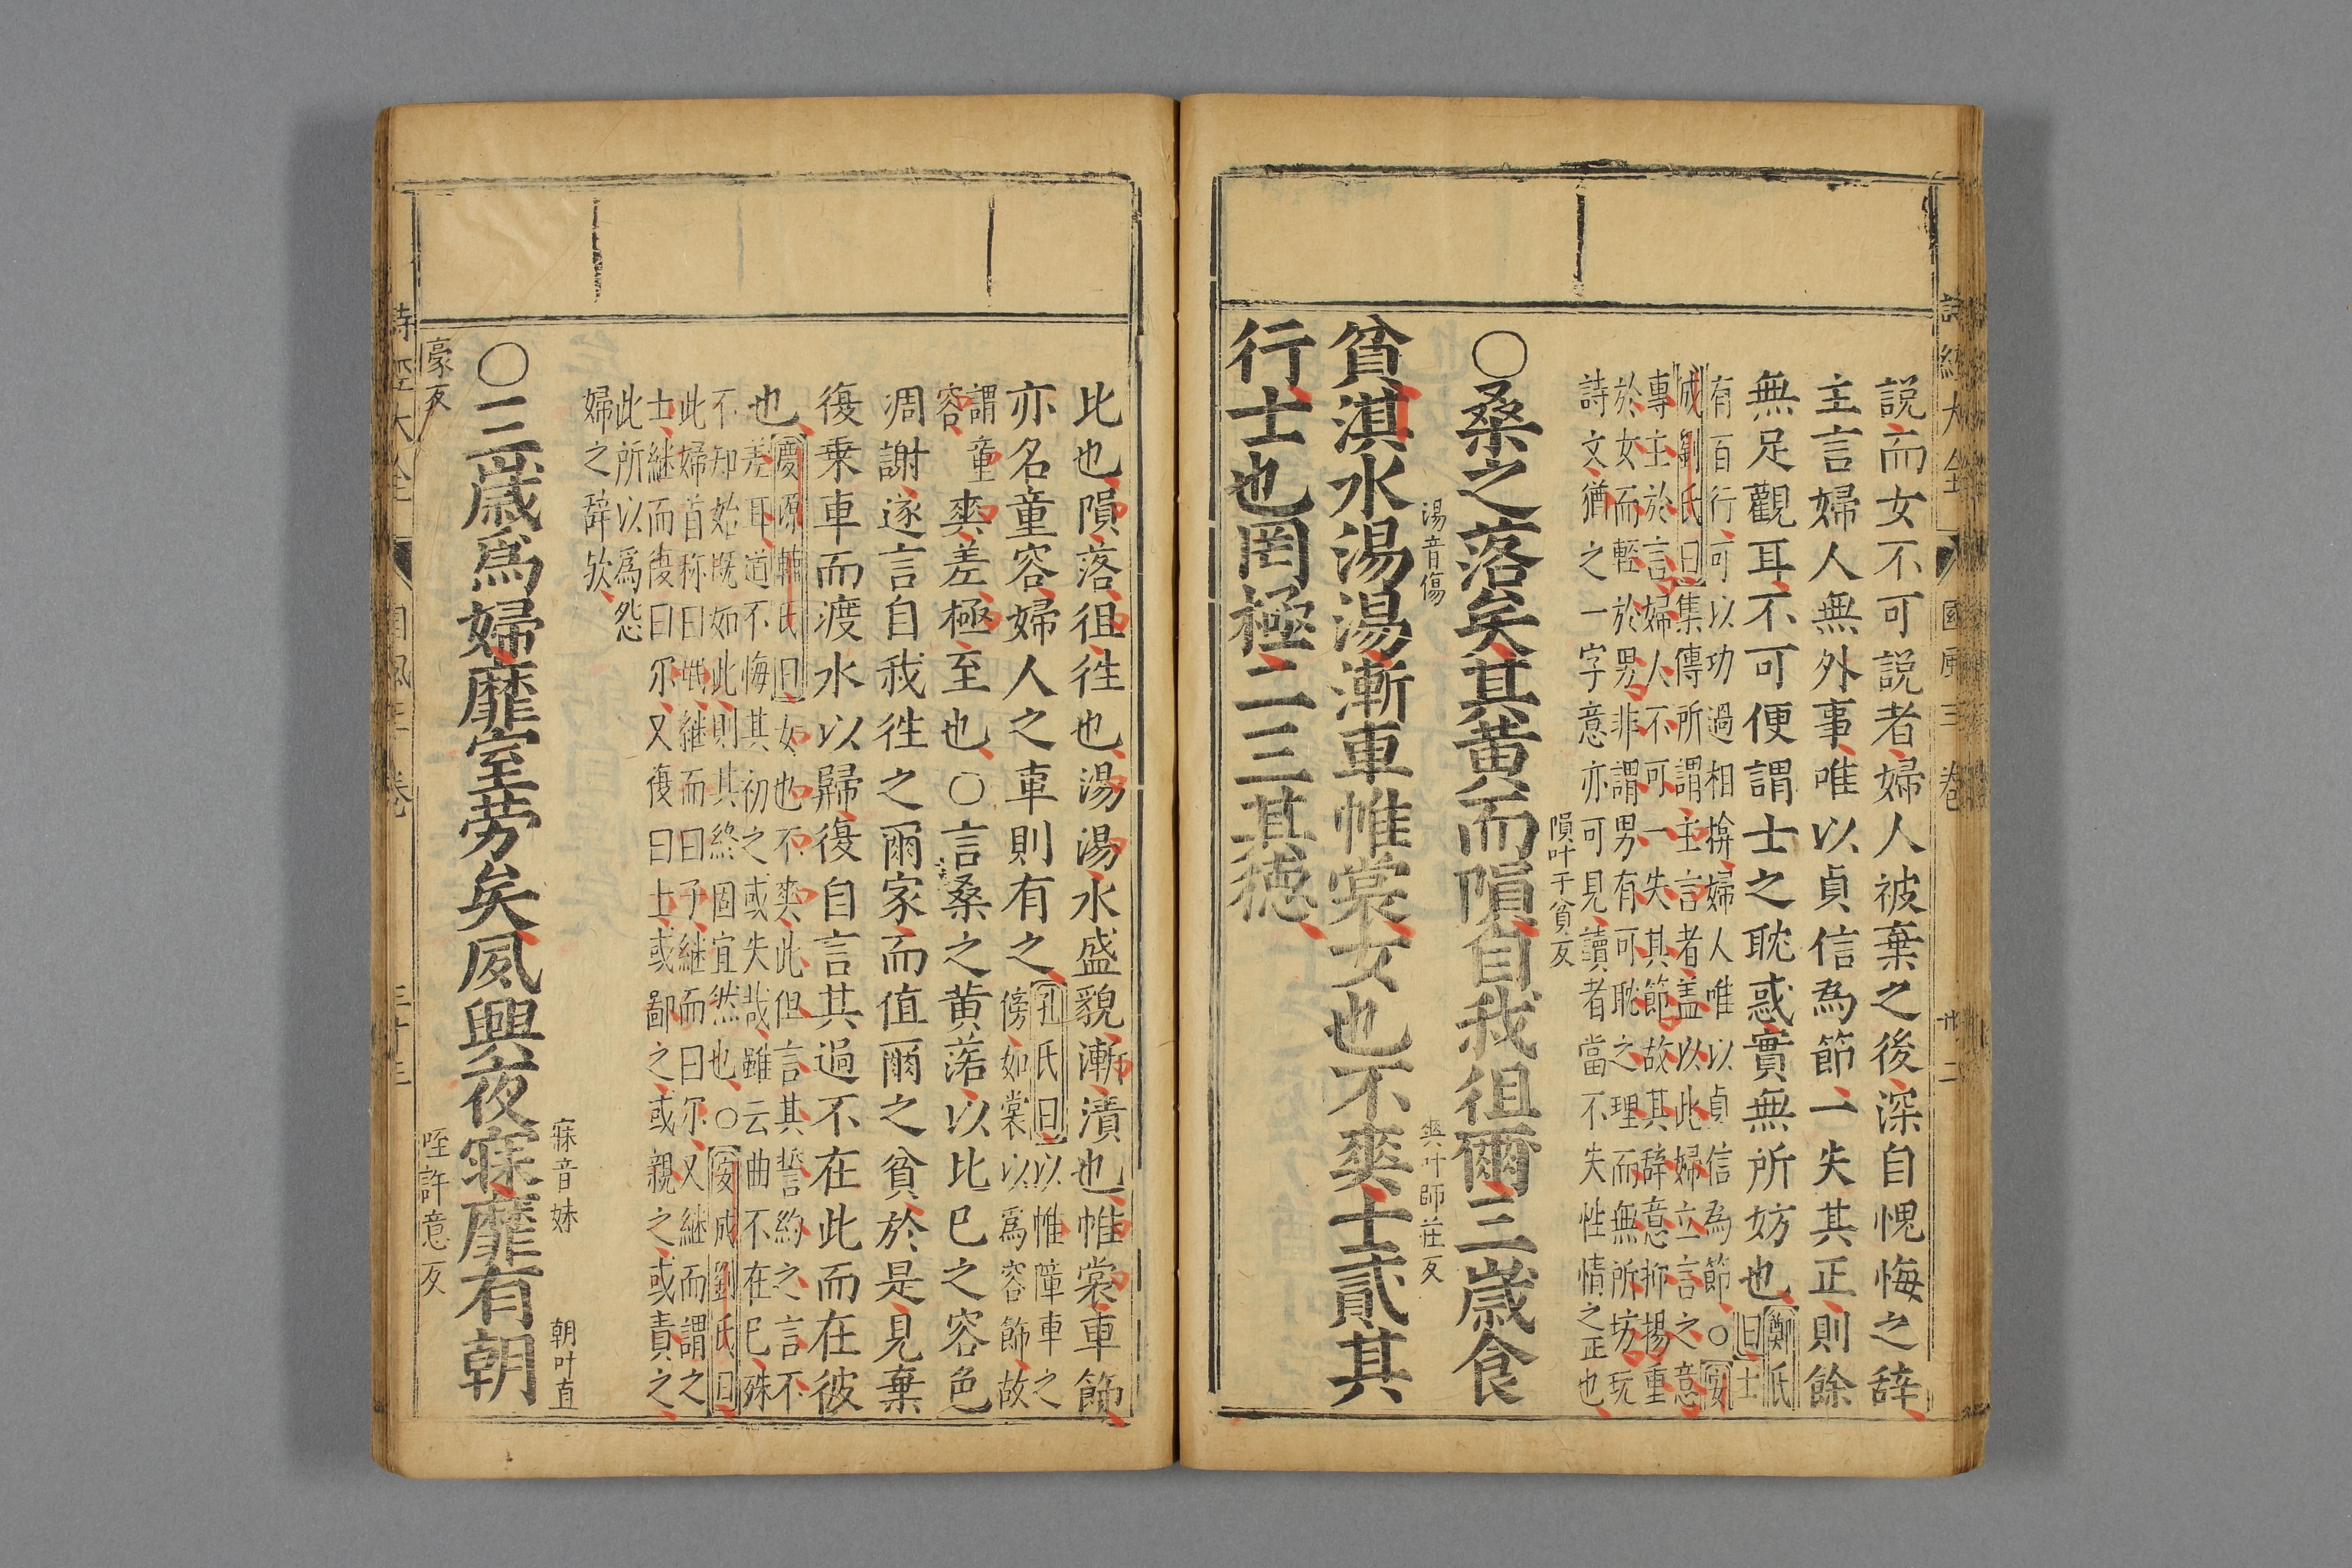 說而女不可說者婦人被棄之後深自愧悔之辭
主言婦人無外事唯以貞信為節一失其正則餘
無足觀耳不可便謂士之耽惑實無所妨也鄭氏
曰士
有百行可以功過相揜婦人唯以貞信為節○安
成劉氏曰集傳所謂主言者盖以此婦立言之意
專主於言婦人不可一失其節故其辞意抑揚重
於女而輕於男非謂男有可耽之理而無所坊玩
詩文猶之一字意亦可見讀者當不失性情之正也
隕叶于貧反
○桑之落矣其黃而隕自我徂爾三歲食
湯音傷
爽叶師莊反
貧淇水湯湯漸車帷裳女也不爽士貳其
行士也罔極二三其德
比也隕落徂徃也湯湯水盛貌漸漬也帷裳車飾
亦名童容婦人之車則有之孔氏曰以帷障車之
傍如裳以爲容飾故
謂童
容
爽差極至也○言桑之黃落以比巳之容色
凋謝遂言自我徃之爾家而值爾之貧於是見棄
復乘車而渡水以歸復自言其過不在此而在彼
也慶源輔氏曰女也不爽此但言其誓約之言不
差耳道不悔其初之或失哉雖云曲不在巳殊
不知始既如此則其終固宜然也○安成劉氏曰
此婦首称曰氓継而曰子継而曰尔又継而謂之
士継而復曰尔又復曰士或鄙之或親之或責之
此所以爲怨
婦之辞欤
寐音妹
朝叶直
○三歲爲婦靡室勞矣夙興夜寐靡有朝
豪反
咥許意反
詩經大全
國風三
卷
卅二